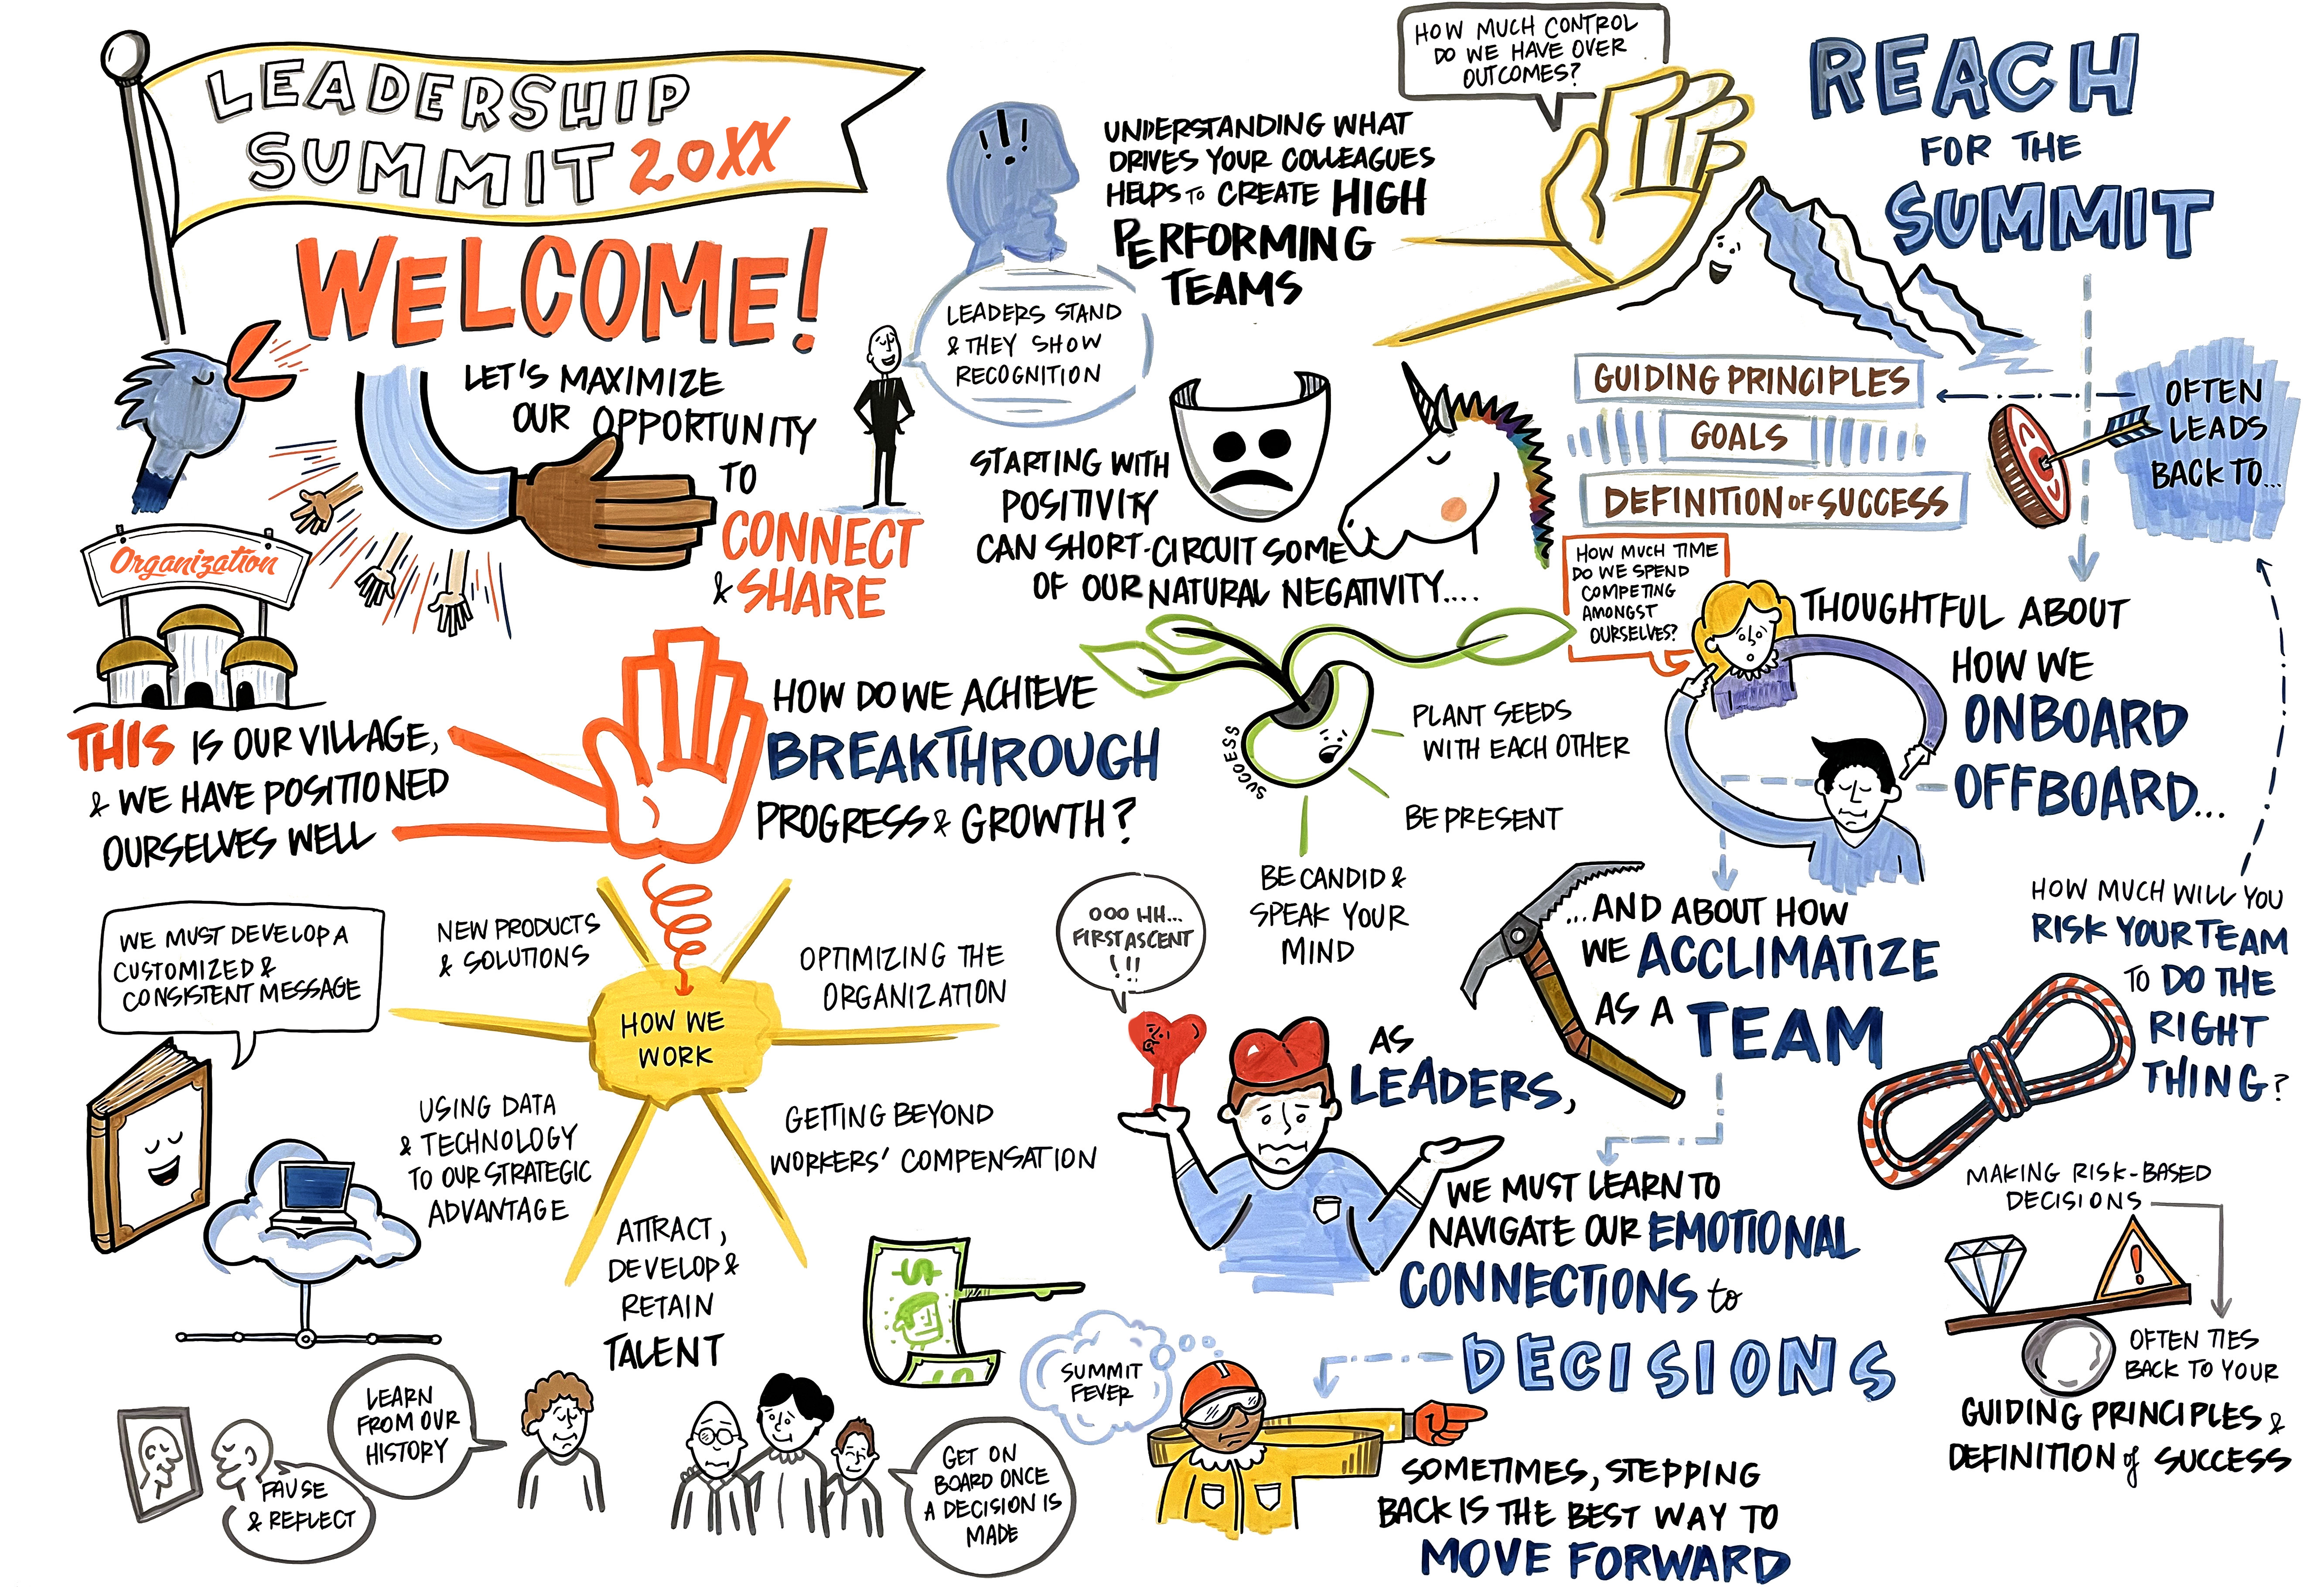 LEADERSHIP
SUMMIT 20XX
WELCOME!
LET'S MAXIMIZE
OUR OPPORTUNITY
TO
CONNECT
& SHARE
Organization
THIS IS OUR VILLAGE,
& WE HAVE POSITIONED
OURSELVES WELL
HOW DO WE ACHIEVE
BREAKTHROUGH
PROGRESS & GROWTH?
WE MUST DEVELOP A
CUSTOMIZED &
CONSISTENT MESSAGE
HOW WE
WORK
NEW PRODUCTS
& SOLUTIONS
OPTIMIZING THE
ORGANIZATION
USING DATA
& TECHNOLOGY
TO OUR STRATEGIC
ADVANTAGE
GETTING BEYOND
WORKERS' COMPENSATION
ATTRACT,
DEVELOP &
RETAIN
TALENT
$
PAUSE
& REFLECT
LEARN
FROM OUR
HISTORY
GET ON
BOARD ONCE
A DECISION IS
MADE
!!!
LEADERS STAND
& THEY SHOW
RECOGNITION
UNDERSTANDING WHAT
DRIVES YOUR COLLEAGUES
HELPS TO CREATE HIGH
PERFORMING
TEAMS
STARTING WITH
POSITIVITY
CAN SHORT-CIRCUIT SOME
OF OUR NATURAL NEGATIVITY....
SUCCESS
PLANT SEEDS
WITH EACH OTHER
BE PRESENT
BE CANDID &
SPEAK YOUR
MIND
HOW MUCH CONTROL
DO WE HAVE OVER
OUTCOMES?
REACH
FOR THE
SUMMIT
GUIDING PRINCIPLES
GOALS
DEFINITION OF SUCCESS
OFTEN
LEADS
BACK TO...
HOW MUCH TIME
DO WE SPEND
COMPETING
AMONGST
OURSELVES?
THOUGHTFUL ABOUT
HOW WE
ONBOARD
OFFBOARD...
...AND ABOUT HOW
WE ACCLIMATIZE
AS A TEAM
OOO HH...
FIRST ASCENT
!!!
AS
LEADERS,
WE MUST LEARN TO
NAVIGATE OUR EMOTIONAL
CONNECTIONS to
DECISIONS
SUMMIT
FEVER
SOMETIMES, STEPPING
BACK IS THE BEST WAY TO
MOVE FORWARD
HOW MUCH WILL YOU
RISK YOUR TEAM
TO DO THE
RIGHT
THING?
MAKING RISK-BASED
DECISIONS
!
OFTEN TIES
BACK TO YOUR
GUIDING PRINCIPLES &
DEFINITION of SUCCESS